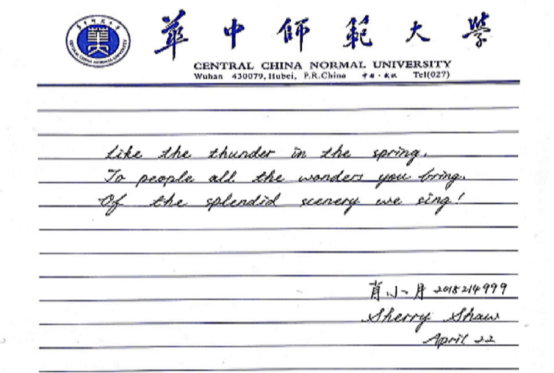 華中師範大學
CENTRAL CHINA NORMAL UNIVERSITY
Wuhan 430079, Hubei, P.R.China 中国·武汉 Tel(027)
Like the thunder in the spring.
To people all the wonders you bring.
Of the splendid scenery we sing!
肖小月 2018214999
Sherry Shaw
April 22